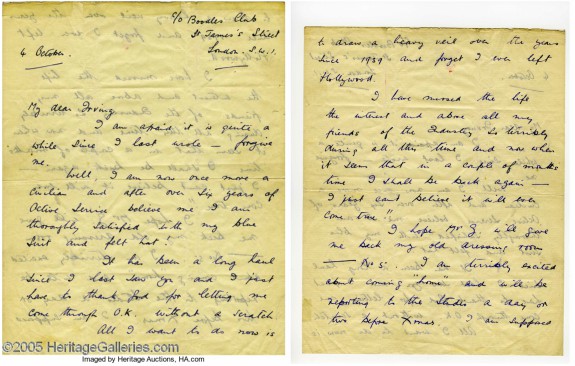 c/o Boodles Club
St. James's Street
London. S.W.1.
4 October.
My dear Irving
I am afraid it is quite a
while since I last wrote — forgive
me.
Well I am now once more a
Civilian and after over six years of
Active Service believe me I am
thoroughly satisfied with my blue
suit and felt hat!
It has been a long haul
since I last saw you and I just
have to thank God for letting me
come through O.K. without a scratch
All I want to do now is
to draw a heavy veil over the years
since 1939 and forget I ever left
Hollywood.
I have missed the life
the interest and above all my
friends of the Industry so terribly
during all this time and now when
it seems that in a couple of months
time I shall be back again —
I just can't believe it will ever
come true"
I hope Mr G. will give
me back my old dressing room
— No 5. I am terribly excited
about coming "home" and will be
reporting to the Studio a day or
two before Xmas. I am supposed
©2005 HeritageGalleries.com
Imaged by Heritage Auctions, HA.com